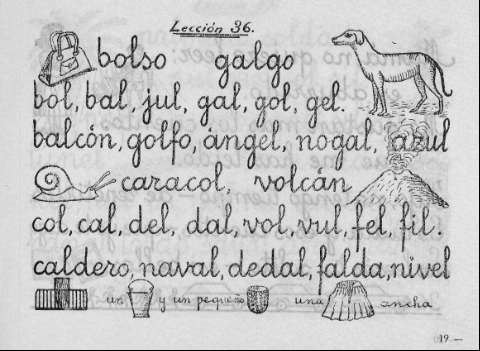 Lección 36.
bolso galgo
bol, bal, jul, gal, gol, gel.
balcón, golfo, ángel, nogal, azul
caracol, volcán
col, cal, del, dal, vol, vul, fel, fil.
caldero, naval, dedal, falda, nivel
un y un pequeño una ancha
19 —